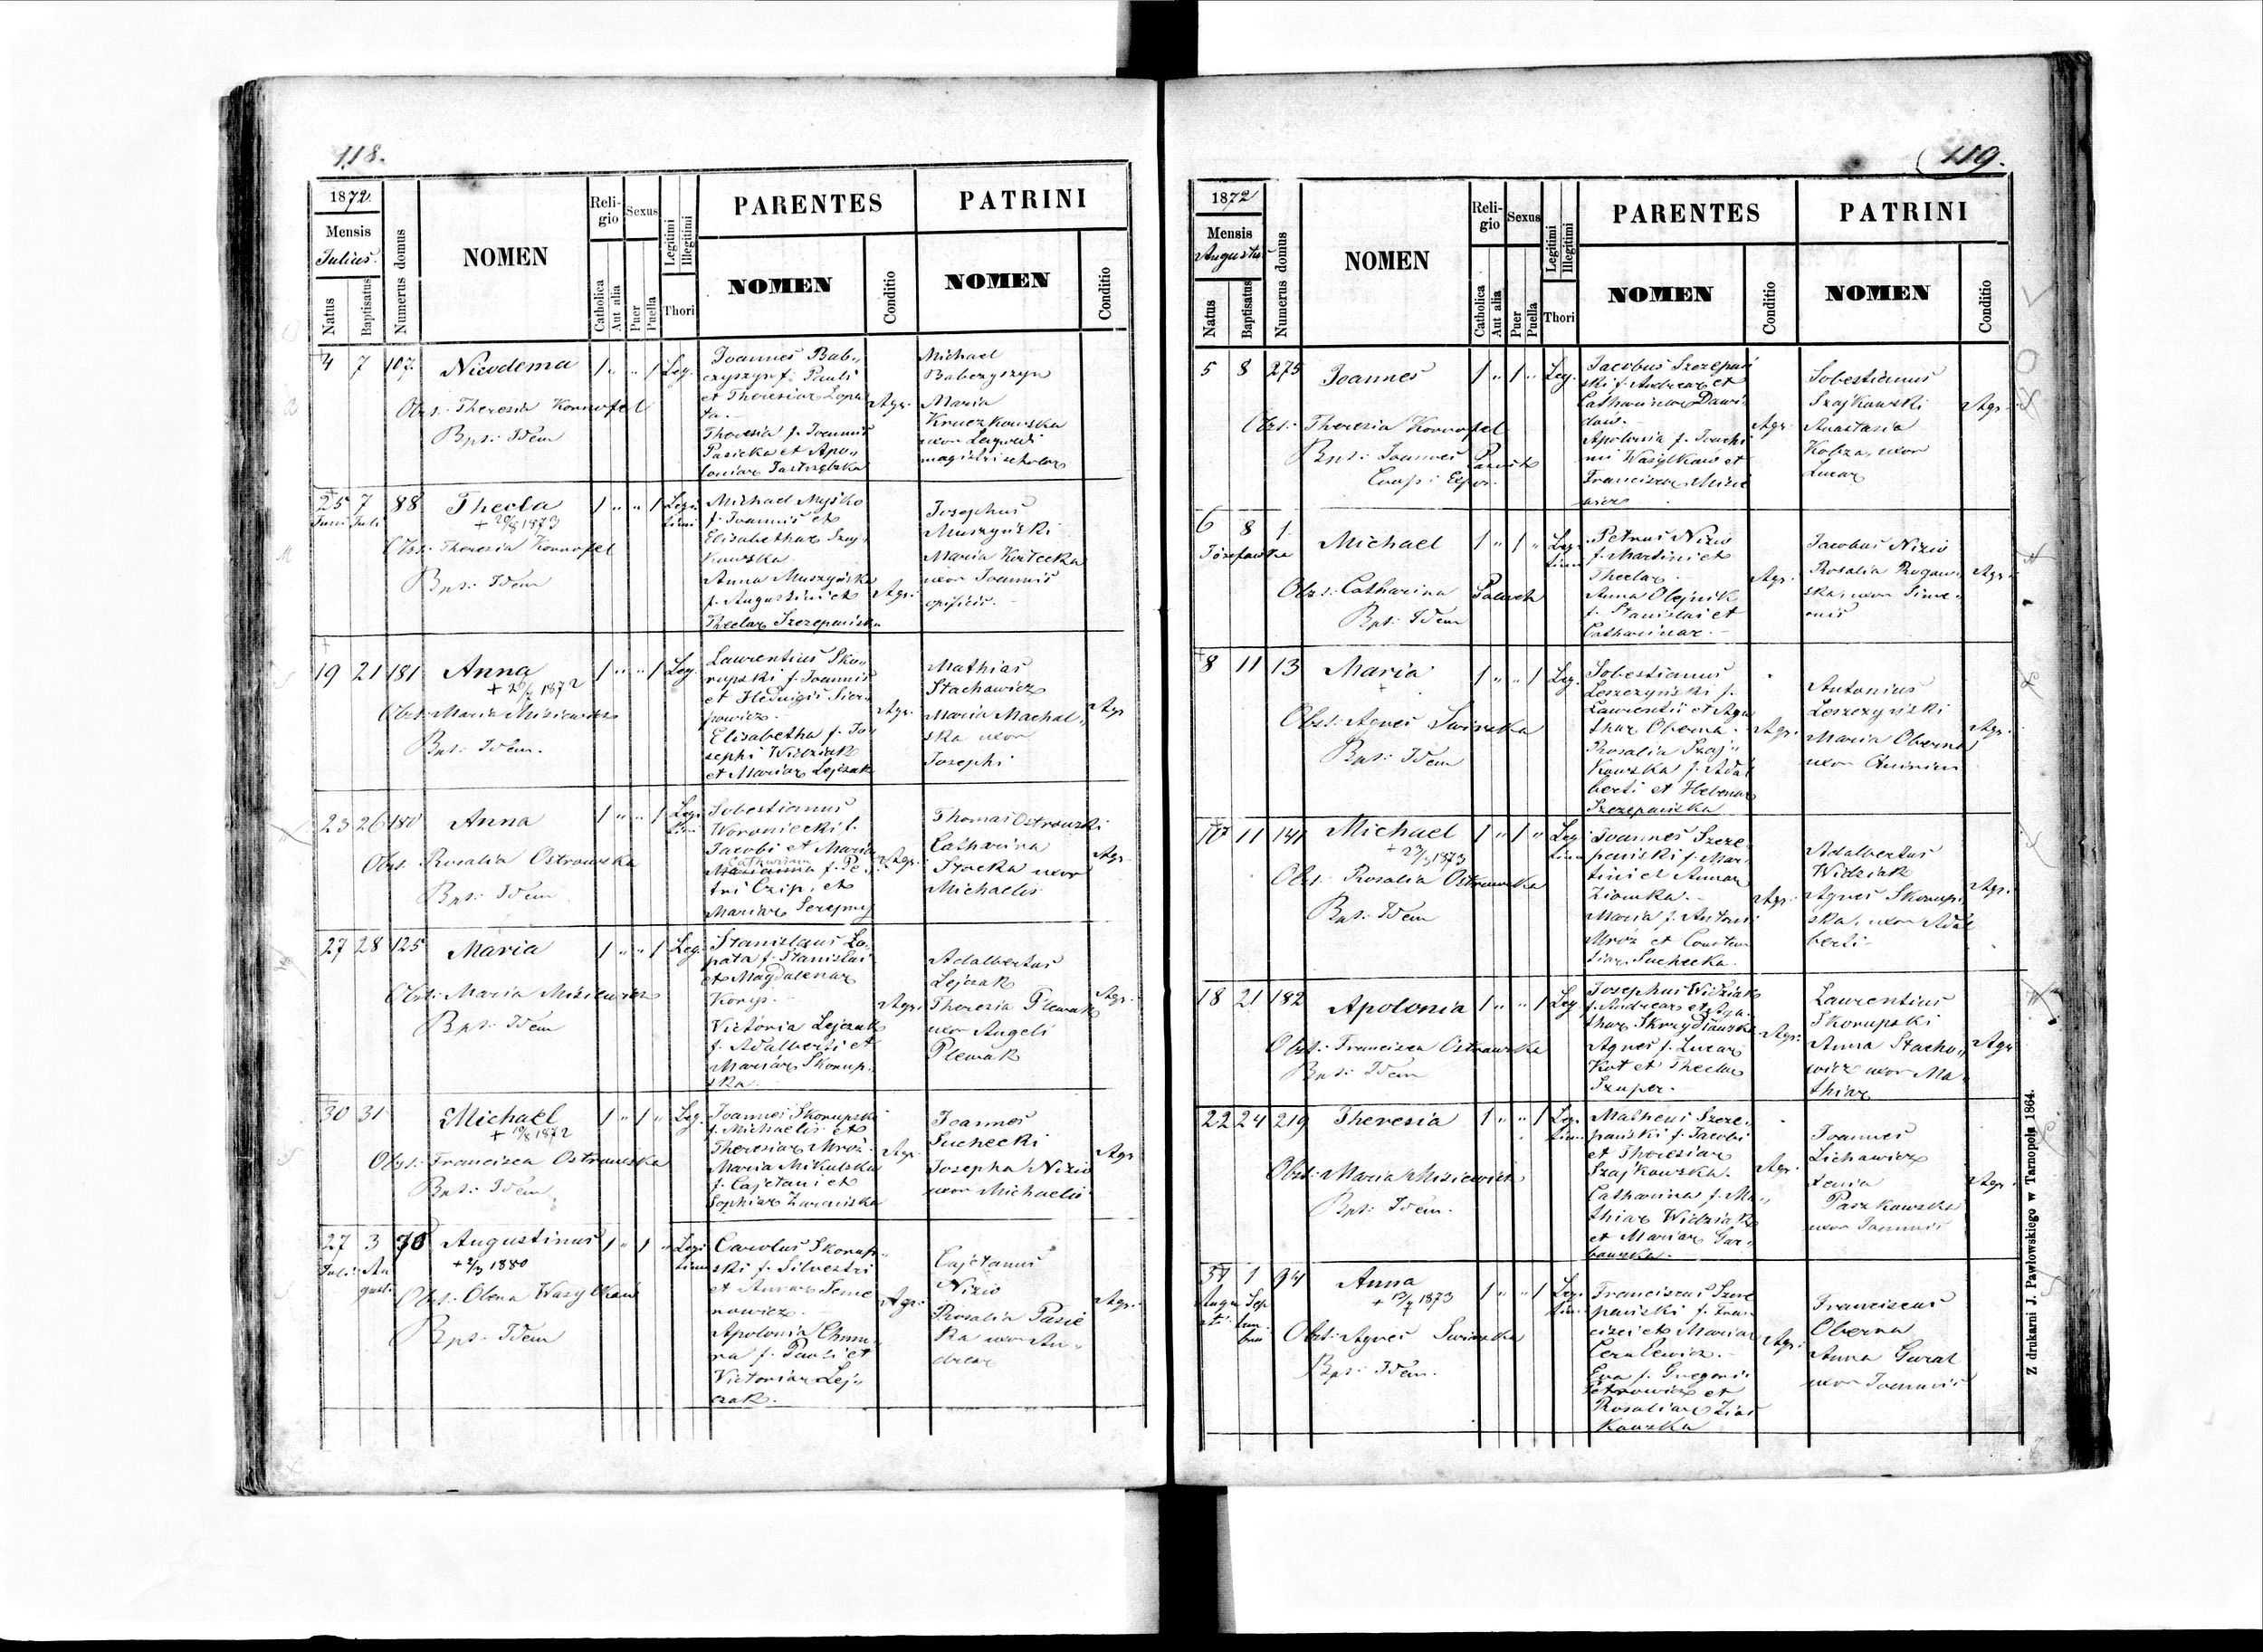 118.
1872.
Mensis
Julius.
Natus
Baptisatus
Numerus domus
NOMEN
Reli-
gio
Catholica
Aut alia
Sexus
Puer
Puella
Legitimi
Illegitimi
Thori
PARENTES
NOMEN
Conditio
PATRINI
NOMEN
Conditio
4 7 107. Nicodema 1 " " 1 Leg.
Obs: Theresia Konnofel
Bpt: Idem
Joannes Bab„
czyszyn f: Pauli
et Theresiae Lopa
ta.
Theresia f. Joannis
Pasicka et Apo„
loniae Jastrzębska
Agr.
Michael
Babczyszyn
Maria
Kruczkowska
uxor
magistri scholae
25 7 88 Thecla 1 " " 1 Legi
Juni Juli timi
+ 20/8 1873
Obst: Theresia Konnofel
Bpt: Idem
Michael Myśko
f. Joannis et
Elisabethae Szaj
kowska
Anna Muszyńska
f. Augustini et
Theclae Szczepańska
Agr.
Josephus
Muszyński
Maria Kostecka
uxor Joannis
opificis.
19 21 181 Anna 1 " " 1 Leg.
1872
Obst: Maria Misiewicz
Bpt: Idem.
Laurentius Sko„
rupski f. Joannis
et Hedwigis Sier„
powicz.
Elisabetha f. Jo„
sephi Widziak
et Mariae Lejczak
Agr.
Mathias
Stachowicz
Maria Machal„
ska uxor
Josephi
Agr
23 26 180 Anna 1 " " 1 Legi
timi
Obst. Rosalia Ostrowska
Bpt: Idem
Sobestianus
Woroniecki f.
Jacobi et Maria
Catharina
Marianna f. Pe„
tri Czip. et
Mariae Serejmy
Agr.
Thomas Ostrowski
Catharina
Stocka uxor
Michaelis
Agr.
27 28 125 Maria 1 " " 1 Leg.
Obst: Maria Misiewicz
Bpt: Idem
Stanislaus Lo„
pata f. Stanislai
et Magdalenae
Korys.
Victoria Lejczak
f. Adalberti et
Mariae Skorup„
ska.
Agr.
Adalbertus
Lejczak
Theresia Plewak
uxor Angeli
Plewak
Agr.
30 31 Michael 1 " 1 " Leg.
+ 10/8 1872
Obst: Francisca Ostrowska
Bpt: Idem
Joannes Skorupski
f. Michaelis et
Theresiae Mróz.
Maria Mikulska
f. Cajetani et
Sophiae
Agr.
Joannes
Suchecki
Josepha Nizio
uxor Michaelis
Agr.
27 3 38 Augustinus 1 " 1 " Legi
Juli Au timi
gusti
1880
Obst: Olena Wasylków
Bpt: Idem
Carolus Skorup„
ski f. Silvestri
et Annae Seme
nowicz.
Apolonia Chmu„
ra f. Pauli et
Victoriae Lej„
czak.
Agr.
Cajetanus
Nizio
Rosalia Pasie
ka uxor An„
dreae
Agr.
119.
1872
Mensis
Augustus
Natus
Baptisatus
Numerus domus
NOMEN
Reli-
gio
Catholica
Aut alia
Sexus
Puer
Puella
Legitimi
Illegitimi
Thori
PARENTES
NOMEN
Conditio
PATRINI
NOMEN
Conditio
5 8 275 Joannes 1 " 1 " Leg.
Obst: Theresia Konnofel
Bpt: Joannes
Coop: Expos.
Jacobus Szczepań
ski f. Andreae et
Catharinae Dawi
dów.
Apolonia f. Joachi
mi Wasylków et
Franciscae
Agr.
Sobestianus
Szajkowski
Anastasia
Kobza, uxor
Lucae
Agr.
6 8 1. Michael 1 " 1 " Legi
Józefówka timi
Obst: Catharina Paluch
Bpt: Idem
Petrus Nizio
f. Martini et
Theclae.
Anna Olejnik
f. Stanislai et
Catharinae.
Agr.
Jacobus Nizio
Rosalia Rogow„
ska, uxor Sime„
onis
Agr.
8 11 13 Maria 1 " " 1 Leg.
+
Obst: Agnes Swirska
Bpt: Idem
Sobestianus
Leszczyński f.
Laurentii et Aga
thae Oberna.
Rosalia Szaj„
kowska f. Adal
berti et Helenae
Szczepańska
Agr.
Antonius
Leszczyński
Maria Oberna
uxor
Agr.
10 11 141 Michael 1 " 1 " Legi
timi
1873
Obst: Rosalia Ostrowska
Bpt: Idem
Joannes Szcze„
pański f. Mar„
tini et Annae
Ziomka.
Maria f. Antoni
Mróz et Constan
tiae Suchecka.
Agr.
Adalbertus
Widziak
Agnes Skorup„
ska, uxor Adal
berti
Agr.
18 21 182 Apolonia 1 " " 1 Leg
Obst: Francisca Ostrowska
Bpt: Idem
Josephus Widziak
f. Andreae et Aga„
thae
Agnes f. Lucae
Kot et Theclae
Szuper.
Agr.
Laurentius
Skorupski
Anna Stacho„
wicz uxor Ma„
thiae
Agr
22 24 219 Theresia 1 " " 1 Legi
timi
Obst: Maria Misiewicz
Bpt: Idem.
Matheus Szcze„
pański f. Jacobi
et Theresiae
Szajkowska.
Catharina f. Ma„
thiae Widziak
et Mariae Gar„
bowska.
Agr.
Joannes
Lichowicz
Paszkowska
uxor Joannis
Agr.
31 1 94 Anna 1 " " 1 Legi
Augu Sep timi
sti tem
bris
1873
Obst: Agnes Swirska
Bpt: Idem.
Franciscus Szcze
pański f. Fran„
cisci et Mariae
Eva f. Gregorii
Petrowicz et
Rosaliae
kowska
Agr.
Franciscus
Oberna
Anna Gural
uxor Joannis
Z drukarni J. Pawłowskiego w Tarnopolu 1864.